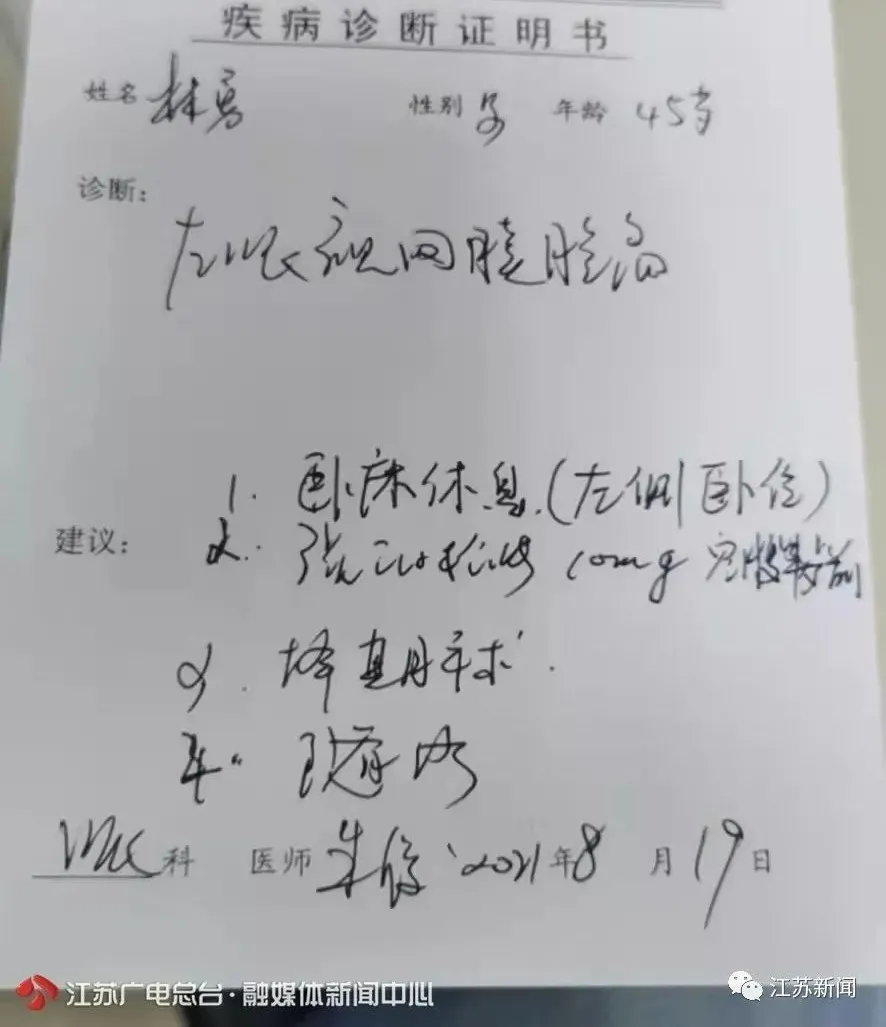 疾病诊断证明书
姓名 林勇 性别 男 年龄 45岁
诊断:
左眼视网膜脱离
1. 卧床休息.(左侧卧位)
建议: 2. 10mg
3. 择期手术.
4. 随访
眼科 医师 朱俊 2021年8月19日
江苏广电总台·融媒体新闻中心
江苏新闻